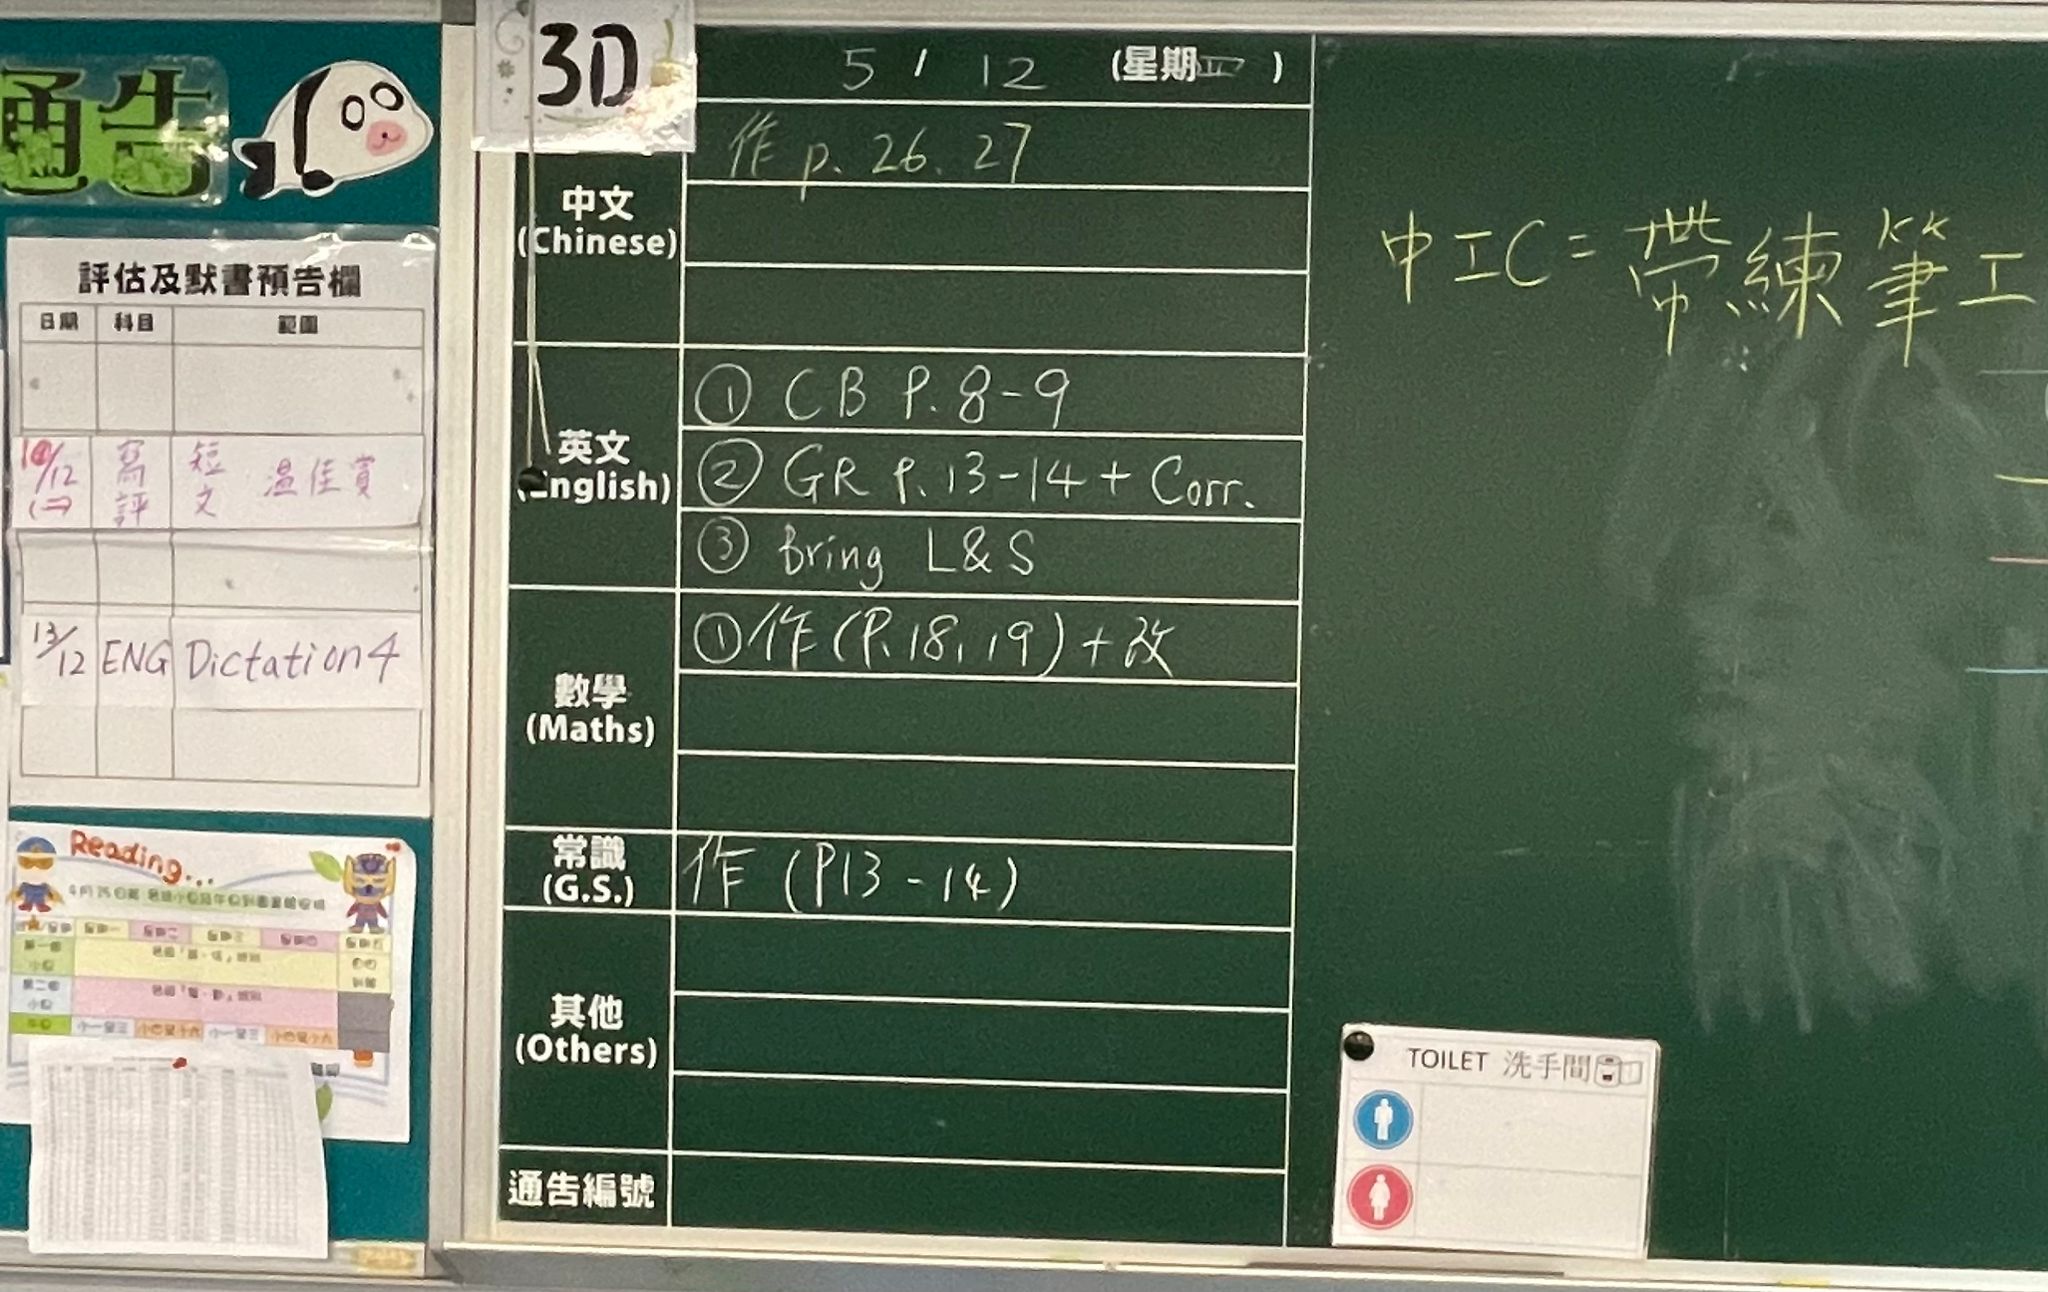 通告
評估及默書預告欄
日期 科目 範圍
10/12 (二) 寫評 短文 溫佳賞
13/12 ENG Dictation 4
Reading...
3D
5 / 12 (星期四)
中文 (Chinese)
作 p. 26. 27
英文 (English)
① CB P. 8-9
② GR P. 13-14 + Corr.
③ Bring L&S
數學 (Maths)
① 作 (P. 18, 19) + 改
常識 (G.S.)
作 (P13 - 14)
其他 (Others)
通告編號
中工C = 帶練筆工
TOILET 洗手間